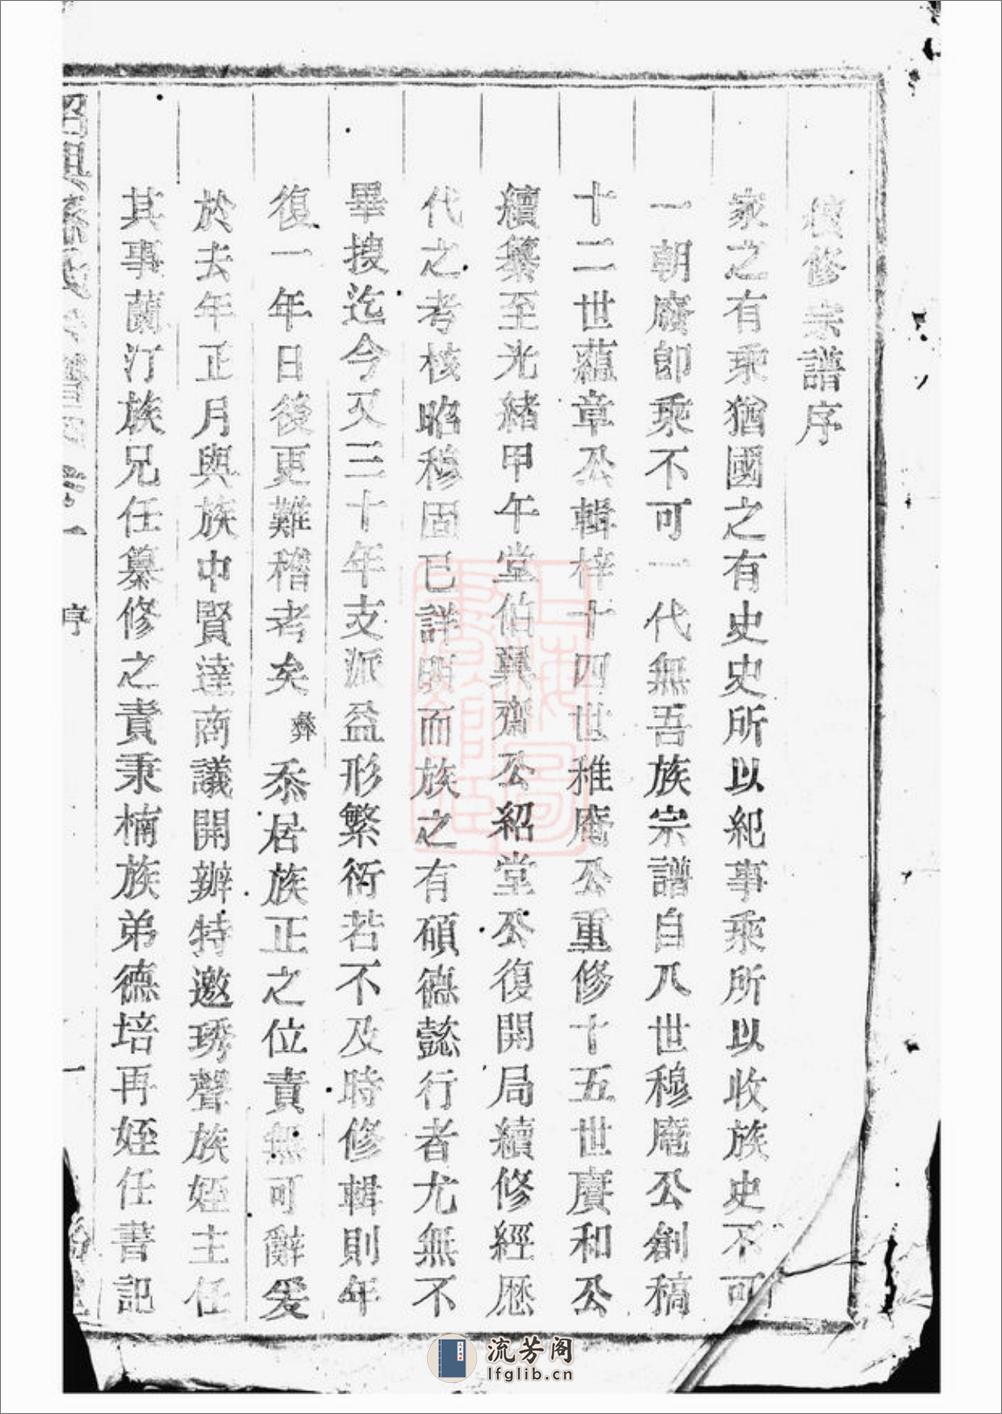 續修宗譜序
家之有乘猶國之有史史所以紀事乘所以收族史不可
一朝廢卽乘不可一代無吾族宗譜自八世穆庵公創稿
十二世蘊章公輯梓十四世雅庵公重修十五世賡和公
續纂至光緒甲午堂伯翼齋公紹堂公復開局續修經歷
代之考核昭穆固已詳明而族之有碩德懿行者尤無不
畢搜迄今又三十年支派益形繁衍若不及時修輯則年
復一年日後更難稽考矣彝忝居族正之位責無可辭爰
於去年正月與族中賢達商議開辦特邀琇聲族姪主任
其事蘭汀族兄任纂修之責秉楠族弟德培再姪任書記
紹興孫氏宗譜 卷一 序 一
流芳阁
lfglib.cn